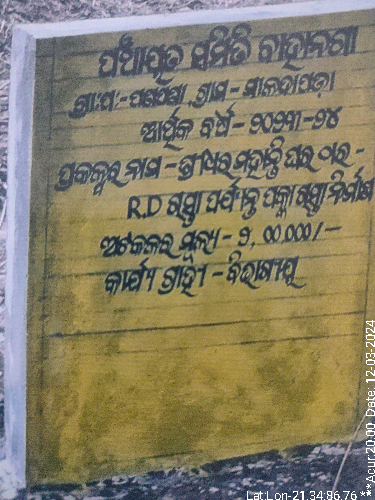 ପଞ୍ଚାୟତ ସମିତି ବାହାନଗା
ଗ୍ରା:ପ:- ପଣପଣା ଗ୍ରାମ -
ଆର୍ଥିକ ବର୍ଷ - ୨୦୨୩-୨୪
ପ୍ରକଳ୍ପର ନାମ - ଶ୍ରୀଧର ମହାନ୍ତି ଘର ଠାର -
R.D ରାସ୍ତା ପର୍ଯ୍ୟନ୍ତ ପକ୍କା ରାସ୍ତା ନିର୍ମାଣ
ଅଟକଳର ମୂଲ୍ୟ - ୨,00,000/-
କାର୍ଯ୍ୟ ଗ୍ରାହୀ - ବିଭାଗୀୟ
Lat:Lon-21.34:86.76 *** Acur:20.00 Date: 12-03-2024